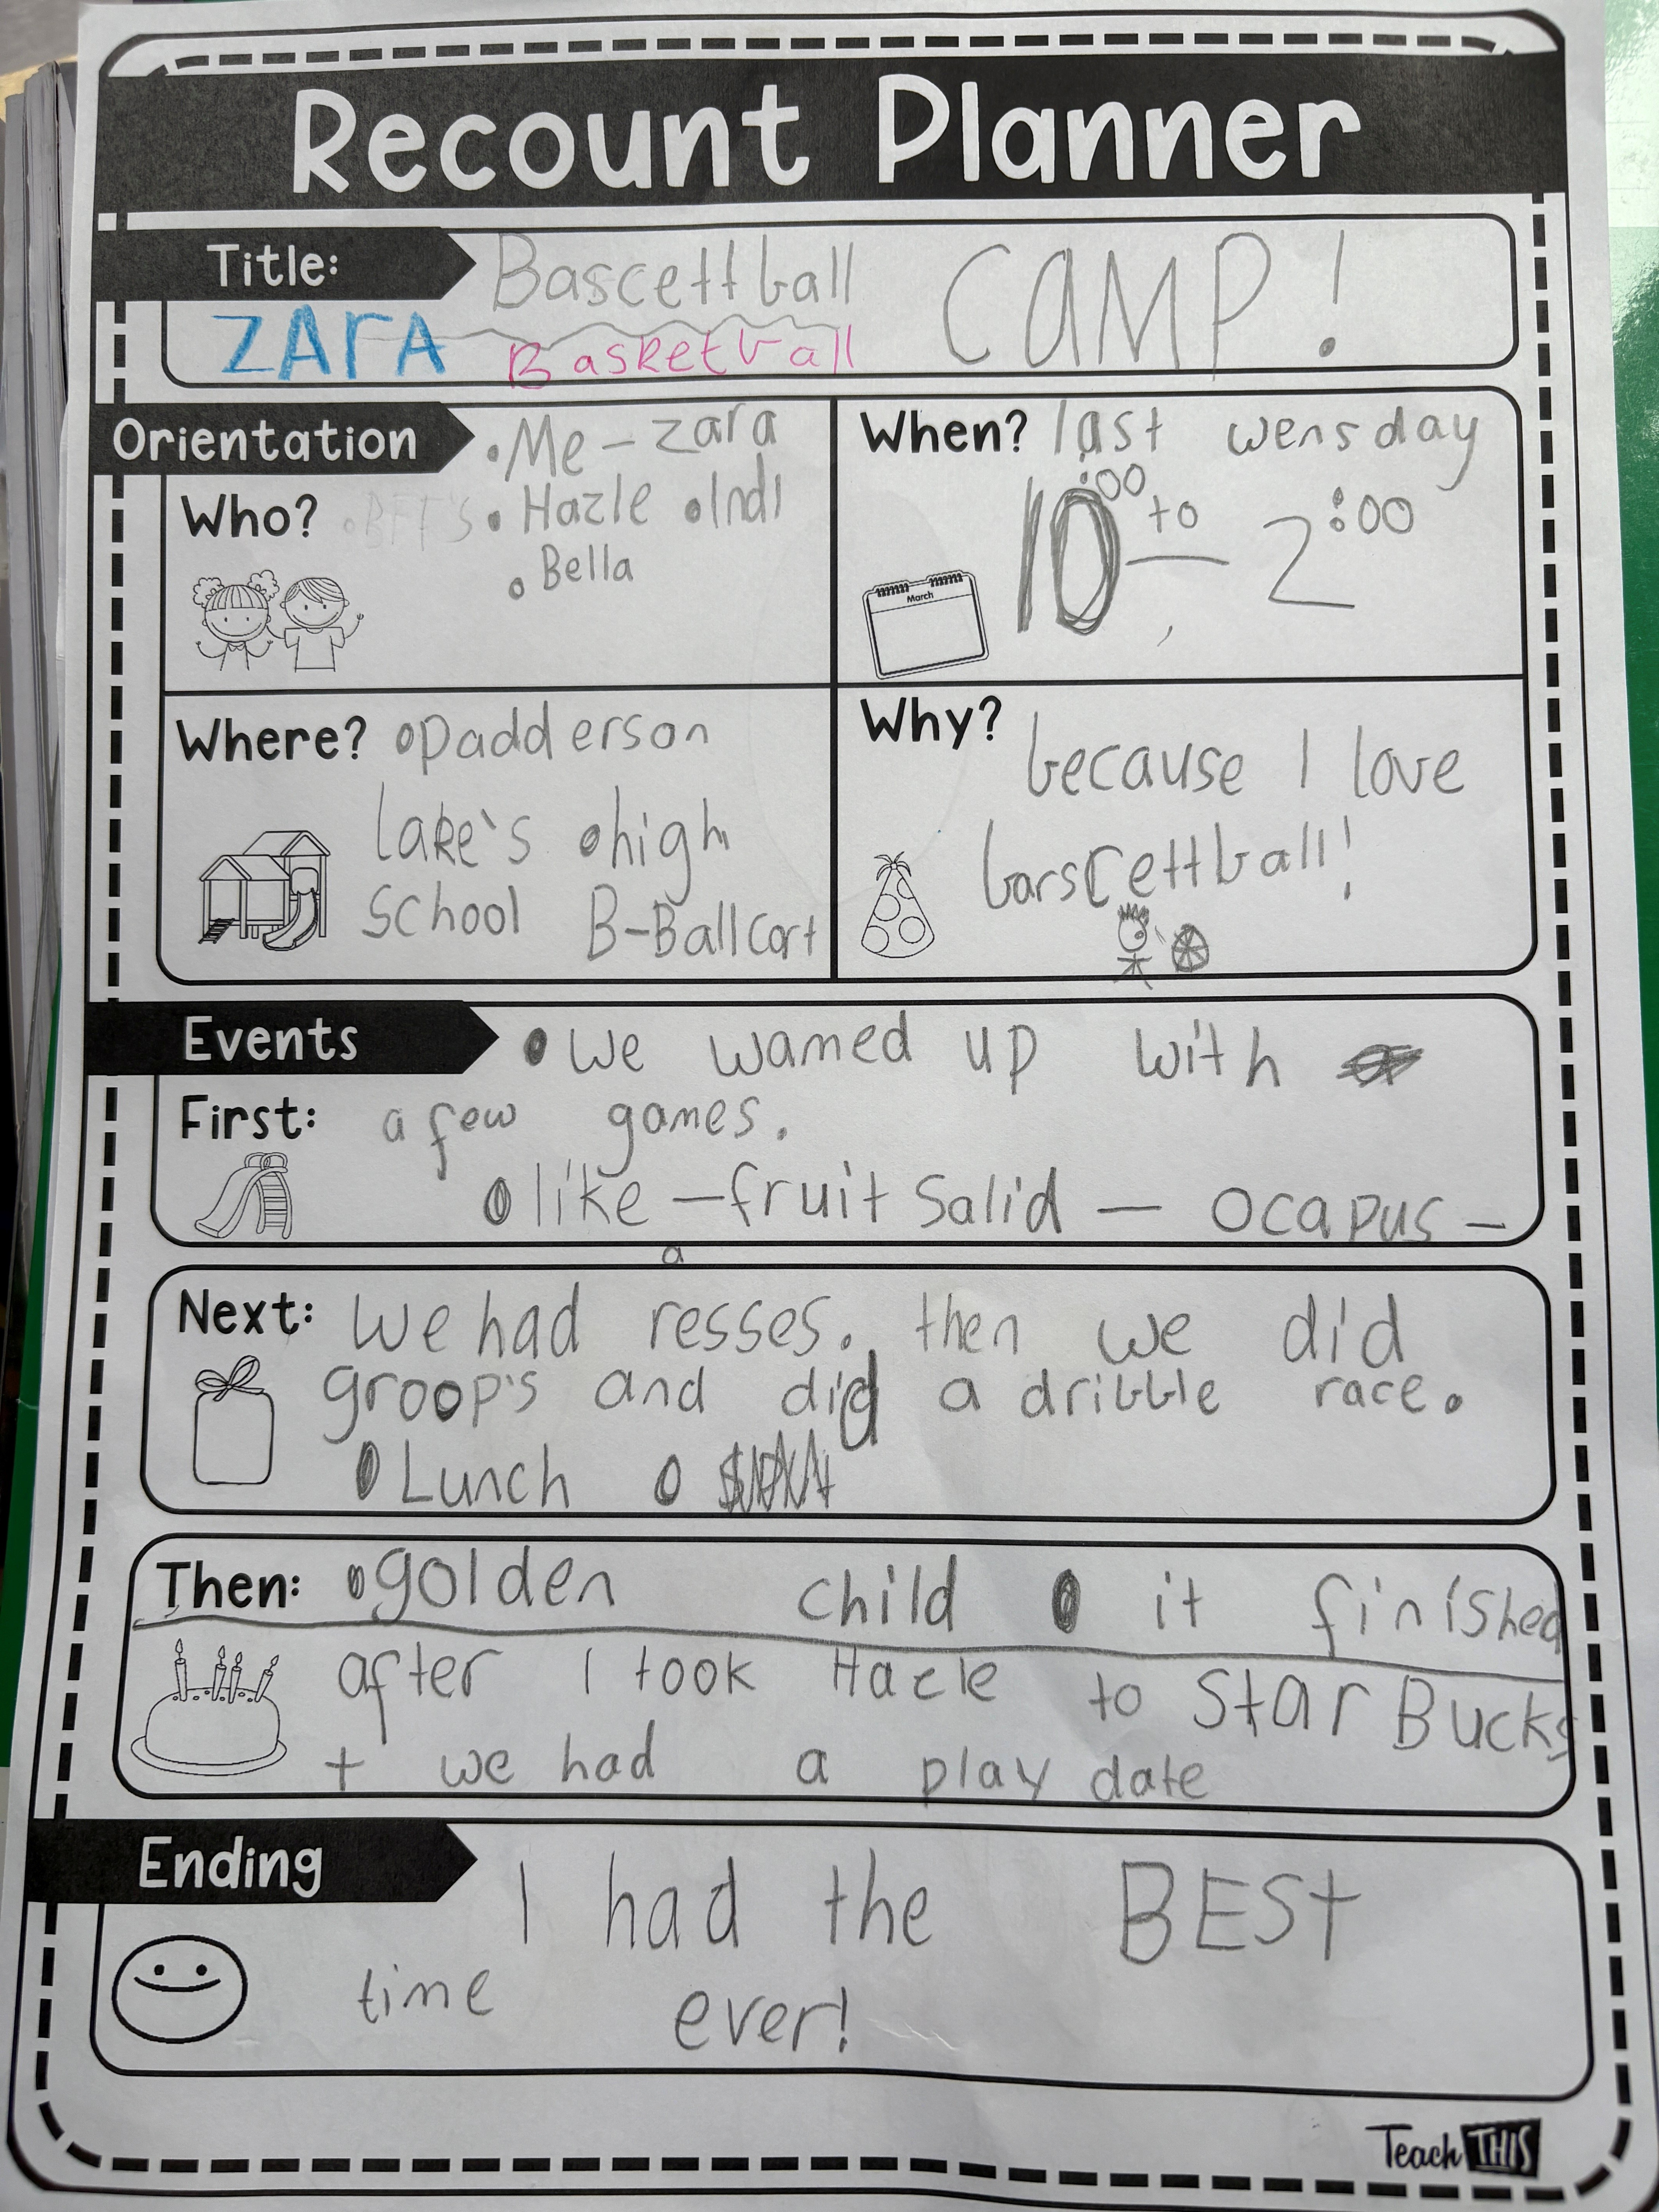 Recount Planner
Title: Bascettball CAMP!
ZArA Basketball
Orientation
•Me - zara
Who? •BFF'S •Hazle •Indi
•Bella
When? last wensday
10:00 to - 2:00
March
Where? •padderson
lake's •high
school B-Ball cort
Why?
because I love
barscettball!
Events •We wamed up with
First: a few games.
•like - fruit salid - ocapus -
a
Next: We had resses. then we did
groop's and did a dribble race.
•Lunch •
Then: •golden child • it finished
after I took Hazle to StarBucks
+ we had a play date
Ending
I had the BESt
time ever!
Teach THIS